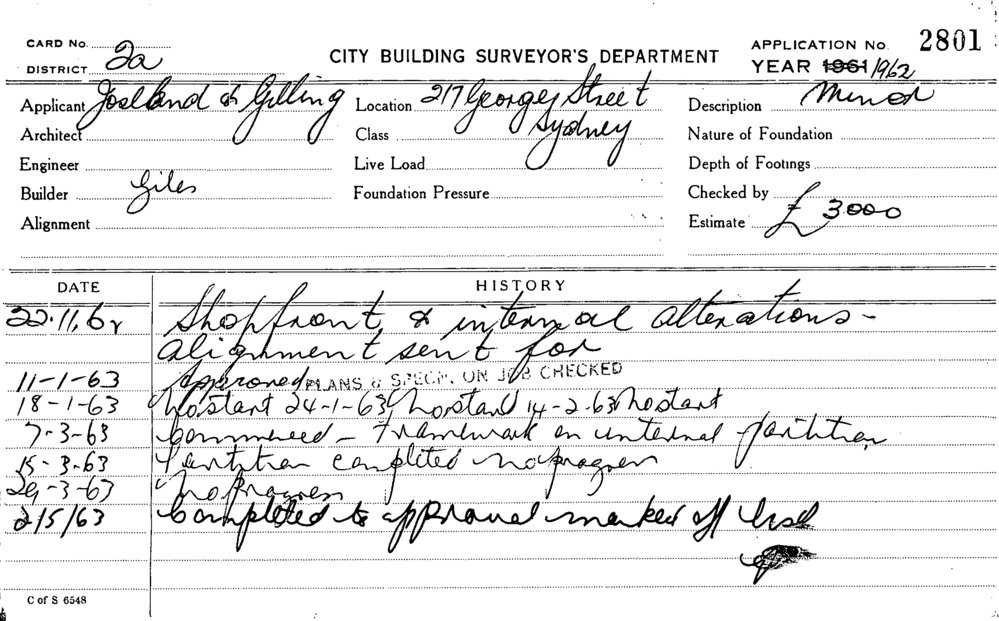 CARD No. 2a
DISTRICT
CITY BUILDING SURVEYOR'S DEPARTMENT
APPLICATION No. 2801
YEAR 1961/1962
Applicant Joselland & Gilling
Location 217 George Street
Sydney
Description Minor
Architect
Class
Nature of Foundation
Engineer
Live Load
Depth of Footings
Builder Giles
Foundation Pressure
Checked by
Alignment
Estimate £3000
DATE
HISTORY
22.11.62 Shopfront & internal alterations -
alignment sent for
11-1-63 Approved PLANS & SPECN. ON JOB CHECKED
18-1-63 No start 24-1-63 No start 14-2-63 No start
7-3-63 Commenced - Framework on internal partition
15-3-63 Partition completed no progress
29-3-63 No progress
2/5/63 Completed to approval marked off
C of S 6548